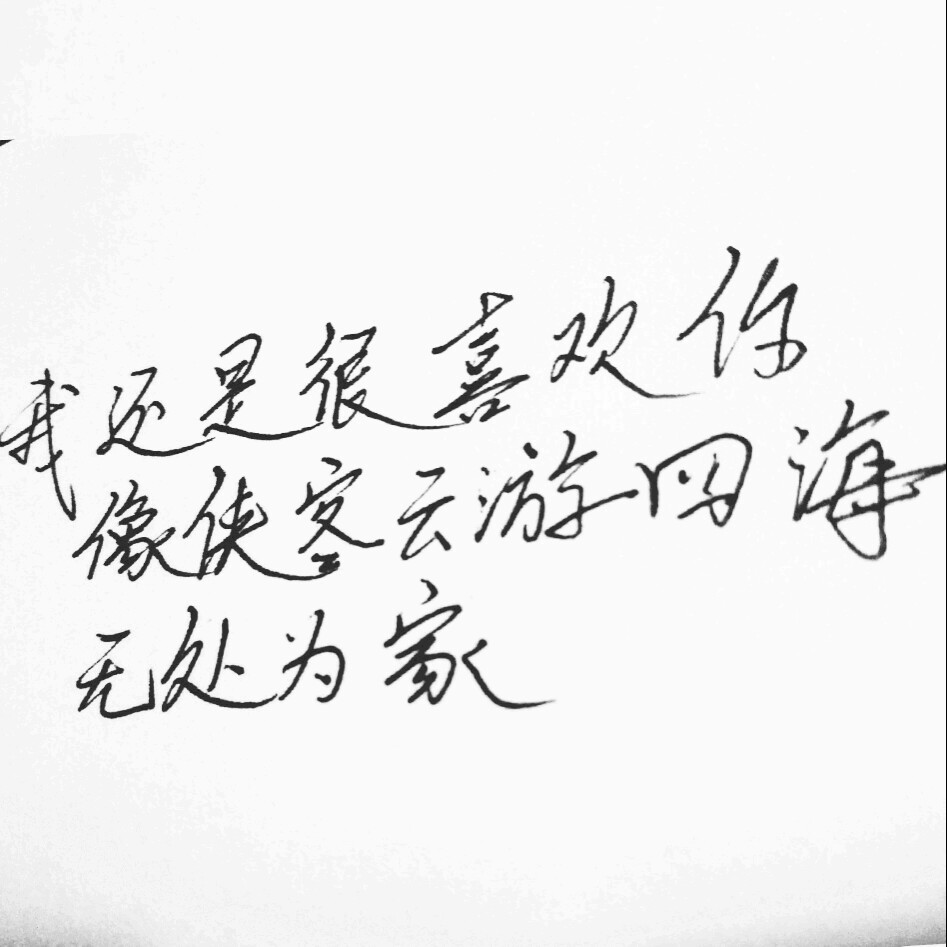 我还是很喜欢你
像侠客云游四海
无处为家